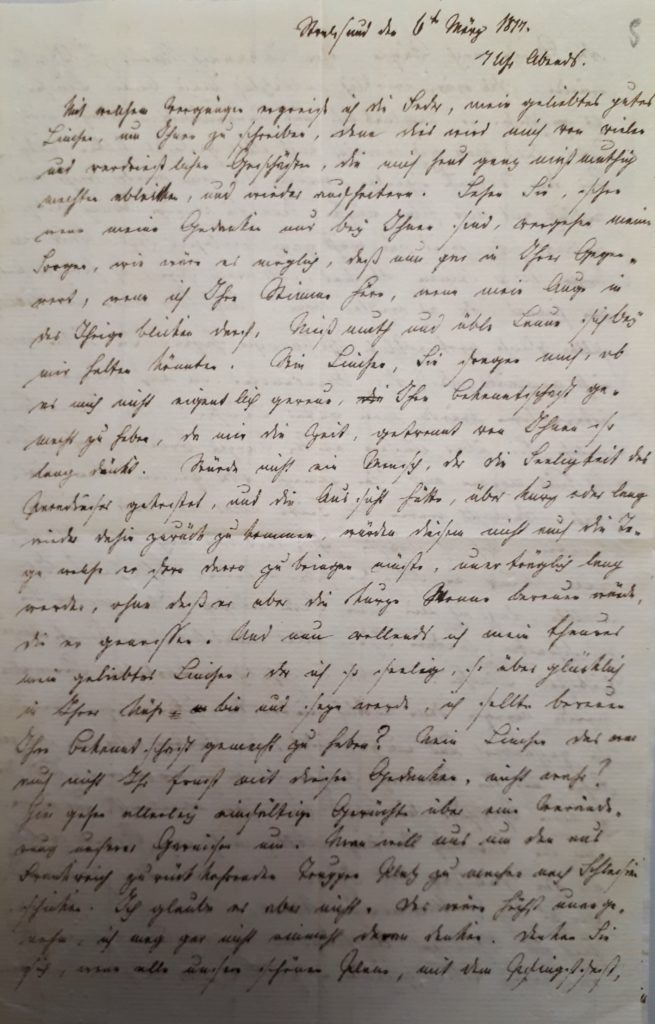 Stralsund den 6ten März 1817.
7 Uhr Abends.
5
Mit welchem Vergnügen ergreife ich die Feder, mein geliebtes gutes
Linchen, um Ihnen zu schreiben, denn dies wird mich von vielen
und verdrieslichen Geschäften, die mich heut ganz mißmuthig
machten ableiten, und wieder aufheitern. Sehen Sie, schon
wenn meine Gedanken nur bey Ihnen sind, vergehen meine
Sorgen, wie wäre es möglich, daß nun gar in Ihrer Gegen-
wart, wenn ich Ihre Stimme höre, wenn mein Auge in
das Ihrige blicken darf, Mißmuth und üble Laune sich bey
mir halten könnten. Nein Linchen, Sie fragen mich, ob
es mich nicht eigentlich gereue, Ihre Bekanntschaft ge-
macht zu haben, da mir die Zeit, getrennt von Ihnen so
lang dünkt. Würde nicht ein Mensch, der die Seeligkeit des
Paradieses gekostet, und die Aussicht hätte, über kurz oder lang
wieder dahin zurück zu kommen, würden diesem nicht auch die Ta-
ge welche er fern davon zubringen müste, unerträglich lang
werden, ohne daß er aber die kurze Wonne bereuen würde,
die er genossen. Und nun vollends ich mein theures
mein geliebtes Linchen, der ich so seelig, so über glücklich
in Ihrer Nähe bin und seyn werde, ich sollte bereuen
Ihre Bekanntschaft gemacht zu haben? Nein Linchen das war
auch nicht Ihr Ernst mit diesen Gedanken, nicht wahr?
Hier gehen allerley einfältige Gerüchte über eine Verände-
rung unserer Garnison um. Man will uns um den aus
Frankreich zurückkehrenden Truppen Platz zu machen nach Schlesien
schicken. Ich glaube es aber nicht. Das wäre höchst unange-
nehm, ich mag gar nicht einmahl daran denken. Denken Sie
sich, wenn alle unsere schönen Plane, mit dem